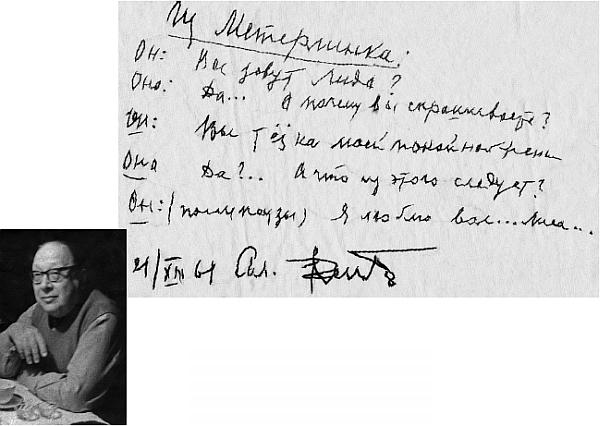 Из Метерлинка:
Он: Вас зовут Лида?
Она: Да... А почему вы спрашиваете?
Он: Вы тёзка моей покойной
Она Да?.. А что из этого следует?
Он: (после паузы) Я люблю вас... Лида...
21/XII 61